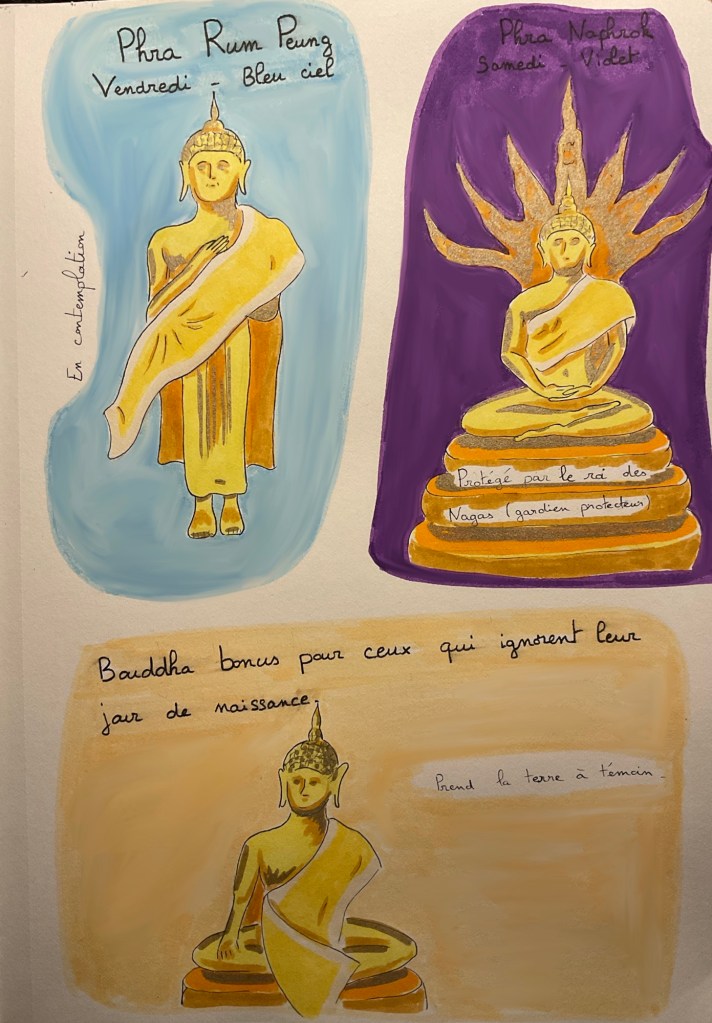 Phra Rum Peung
Vendredi - Bleu ciel
En contemplation
Phra Naphrok
Samedi - Violet
Protégé par le roi des
Nagas (gardien protecteur)
Bouddha bonus pour ceux qui ignorent leur
jour de naissance.
Prend la terre à témoin.